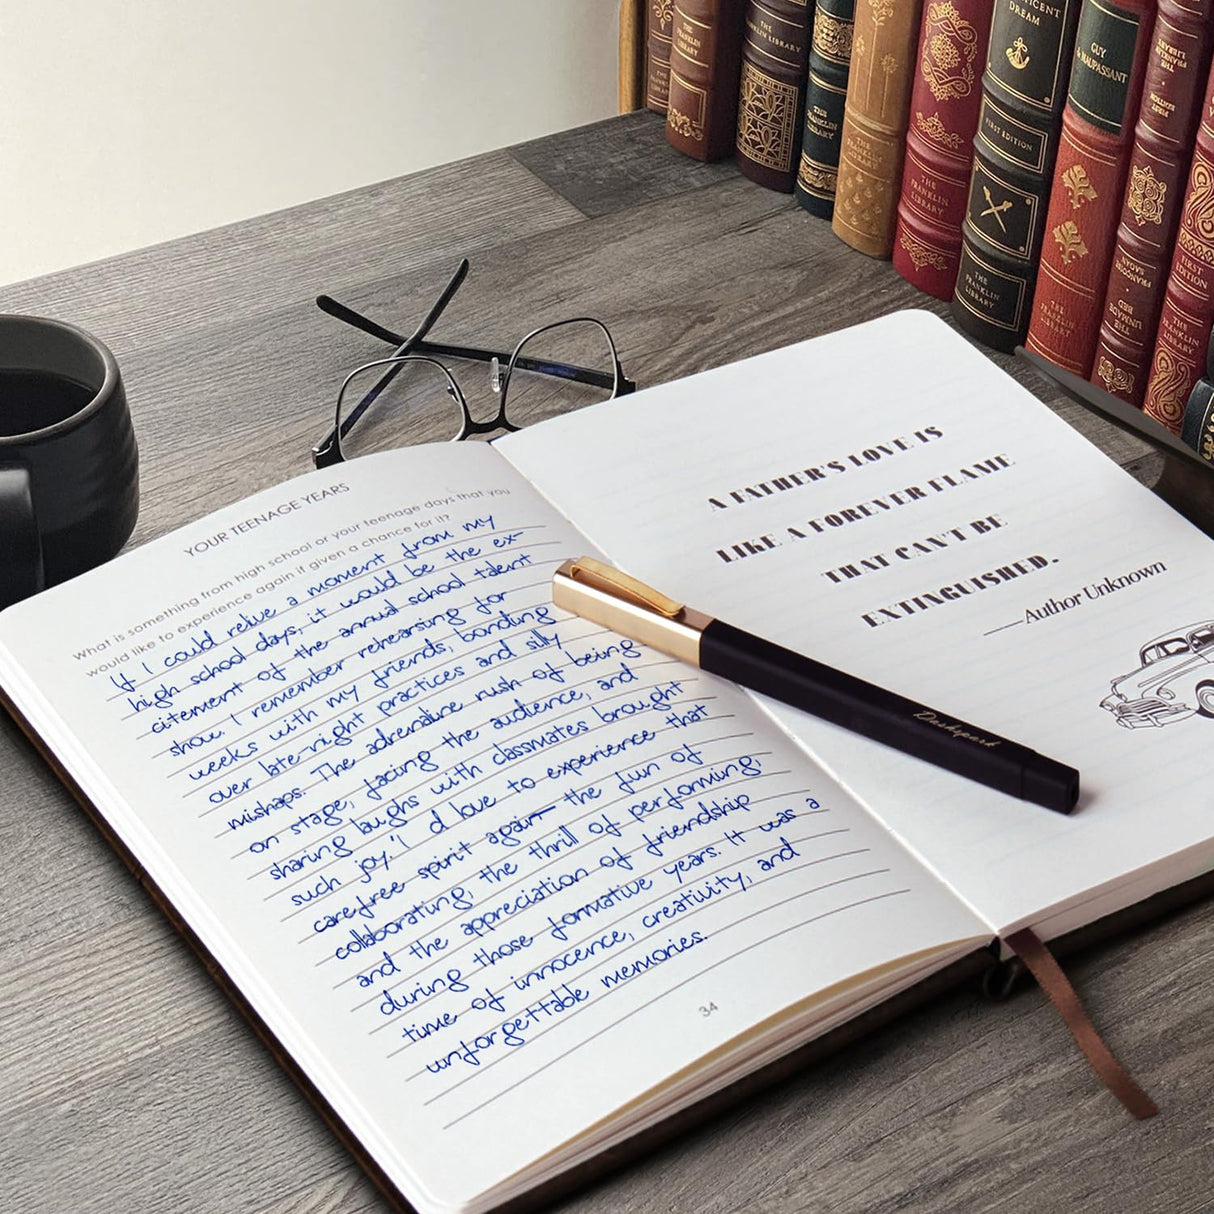 YOUR TEENAGE YEARS
What is something from high school or your teenage days that you
would like to experience again if given a chance for it?
If I could relive a moment from my
high school days, it would be the ex-
citement of the annual school talent
show. I remember rehearsing for
weeks with my friends, bonding
over late-night practices and silly
mishaps. The adrenaline rush of being
on stage, facing the audience, and
sharing laughs with classmates brought
such joy. I'd love to experience that
carefree spirit again— the fun of
collaborating, the thrill of performing,
and the appreciation of friendship
during those formative years. It was a
time of innocence, creativity, and
unforgettable memories.
34
A FATHER'S LOVE IS
LIKE A FOREVER FLAME
THAT CAN'T BE
EXTINGUISHED.
—Author Unknown
Dashipark
THE FRANKLIN LIBRARY
THE FRANKLIN LIBRARY
THE FRANKLIN LIBRARY
THE FRANKLIN LIBRARY
THE FRANKLIN LIBRARY
DREAM
FIRST EDITION
THE FRANKLIN LIBRARY
GUY
de MAUPASSANT
THE FRANKLIN LIBRARY
THE FRANKLIN LIBRARY
FIRST EDITION
FRANÇOISE SAGAN
THE UNMADE BED
FIRST EDITION
THE FRANKLIN LIBRARY